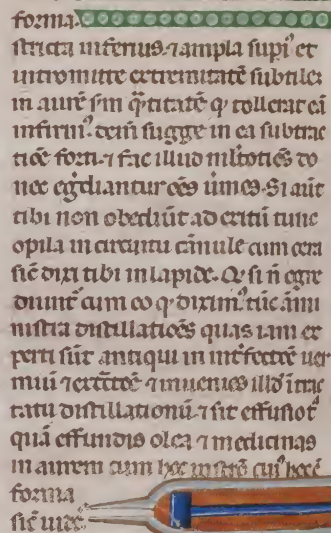 forma.
stricta inferius ⁊ ampla supi᷑ et
intromitte extremitatē subtilez
in aurē ẜm q̄titatē ꝙ tollerat eā
infirm᷒. dein̄ sugge in ea subtrac
tiōe forti ⁊ fac illud ml̄totiēs do
nec egͥdiantur oēs ūmes. Si aūt
tibi non obediūt ad exitū tunc
opila in circuitu cānule cum cera
sic̄ dixi tibi in lapide. Qꝫ si n̄ egre
diunt᷑ cum eo ꝙ dixim᷒ tūc ām̄i
nistra distillatiōēs quas iam ex
perti sūt antiqui in int᷑fectōē uer
miū ⁊ ⁊ inuenies illd̄ ī trac
tatu distillationū ⁊ sit effusio
quā effundis olea ⁊ medicinas
in aurem cum hoc īnstrō cui᷒ hec ē
forma
sic̄ uides